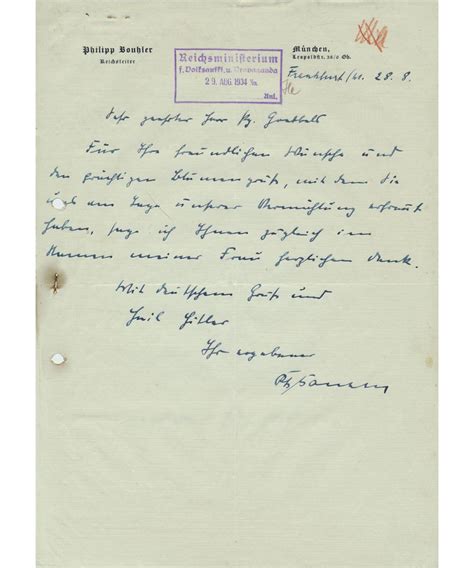 Philipp Bouhler
Reichsleiter
München,
Leopoldstr. 36/0 Gb.
Reichsministerium
f. Volksaufkl. u. Propaganda
29. AUG 1934
Anl.
Frankfurt/M. 28. 8.
Sehr geehrter Herr Pg. Goebbels
Für Ihre freundlichen Wünsche und
den prächtigen Blumengruß, mit dem Sie
uns am Tage unserer Vermählung erfreut
haben, sage ich Ihnen zugleich im
Namen meiner Frau herzlichen Dank.
Mit deutschem Gruß und
Heil Hitler
Ihr ergebener